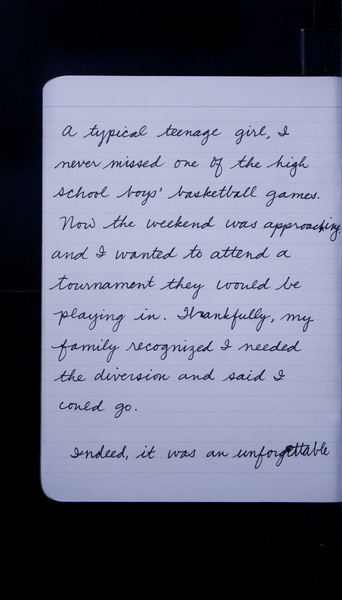 A typical teenage girl, I
never missed one of the high
school boys' basketball games.
Now the weekend was approaching
and I wanted to attend a
tournament they would be
playing in. Thankfully, my
family recognized I needed
the diversion and said I
could go.
Indeed, it was an unforgettable